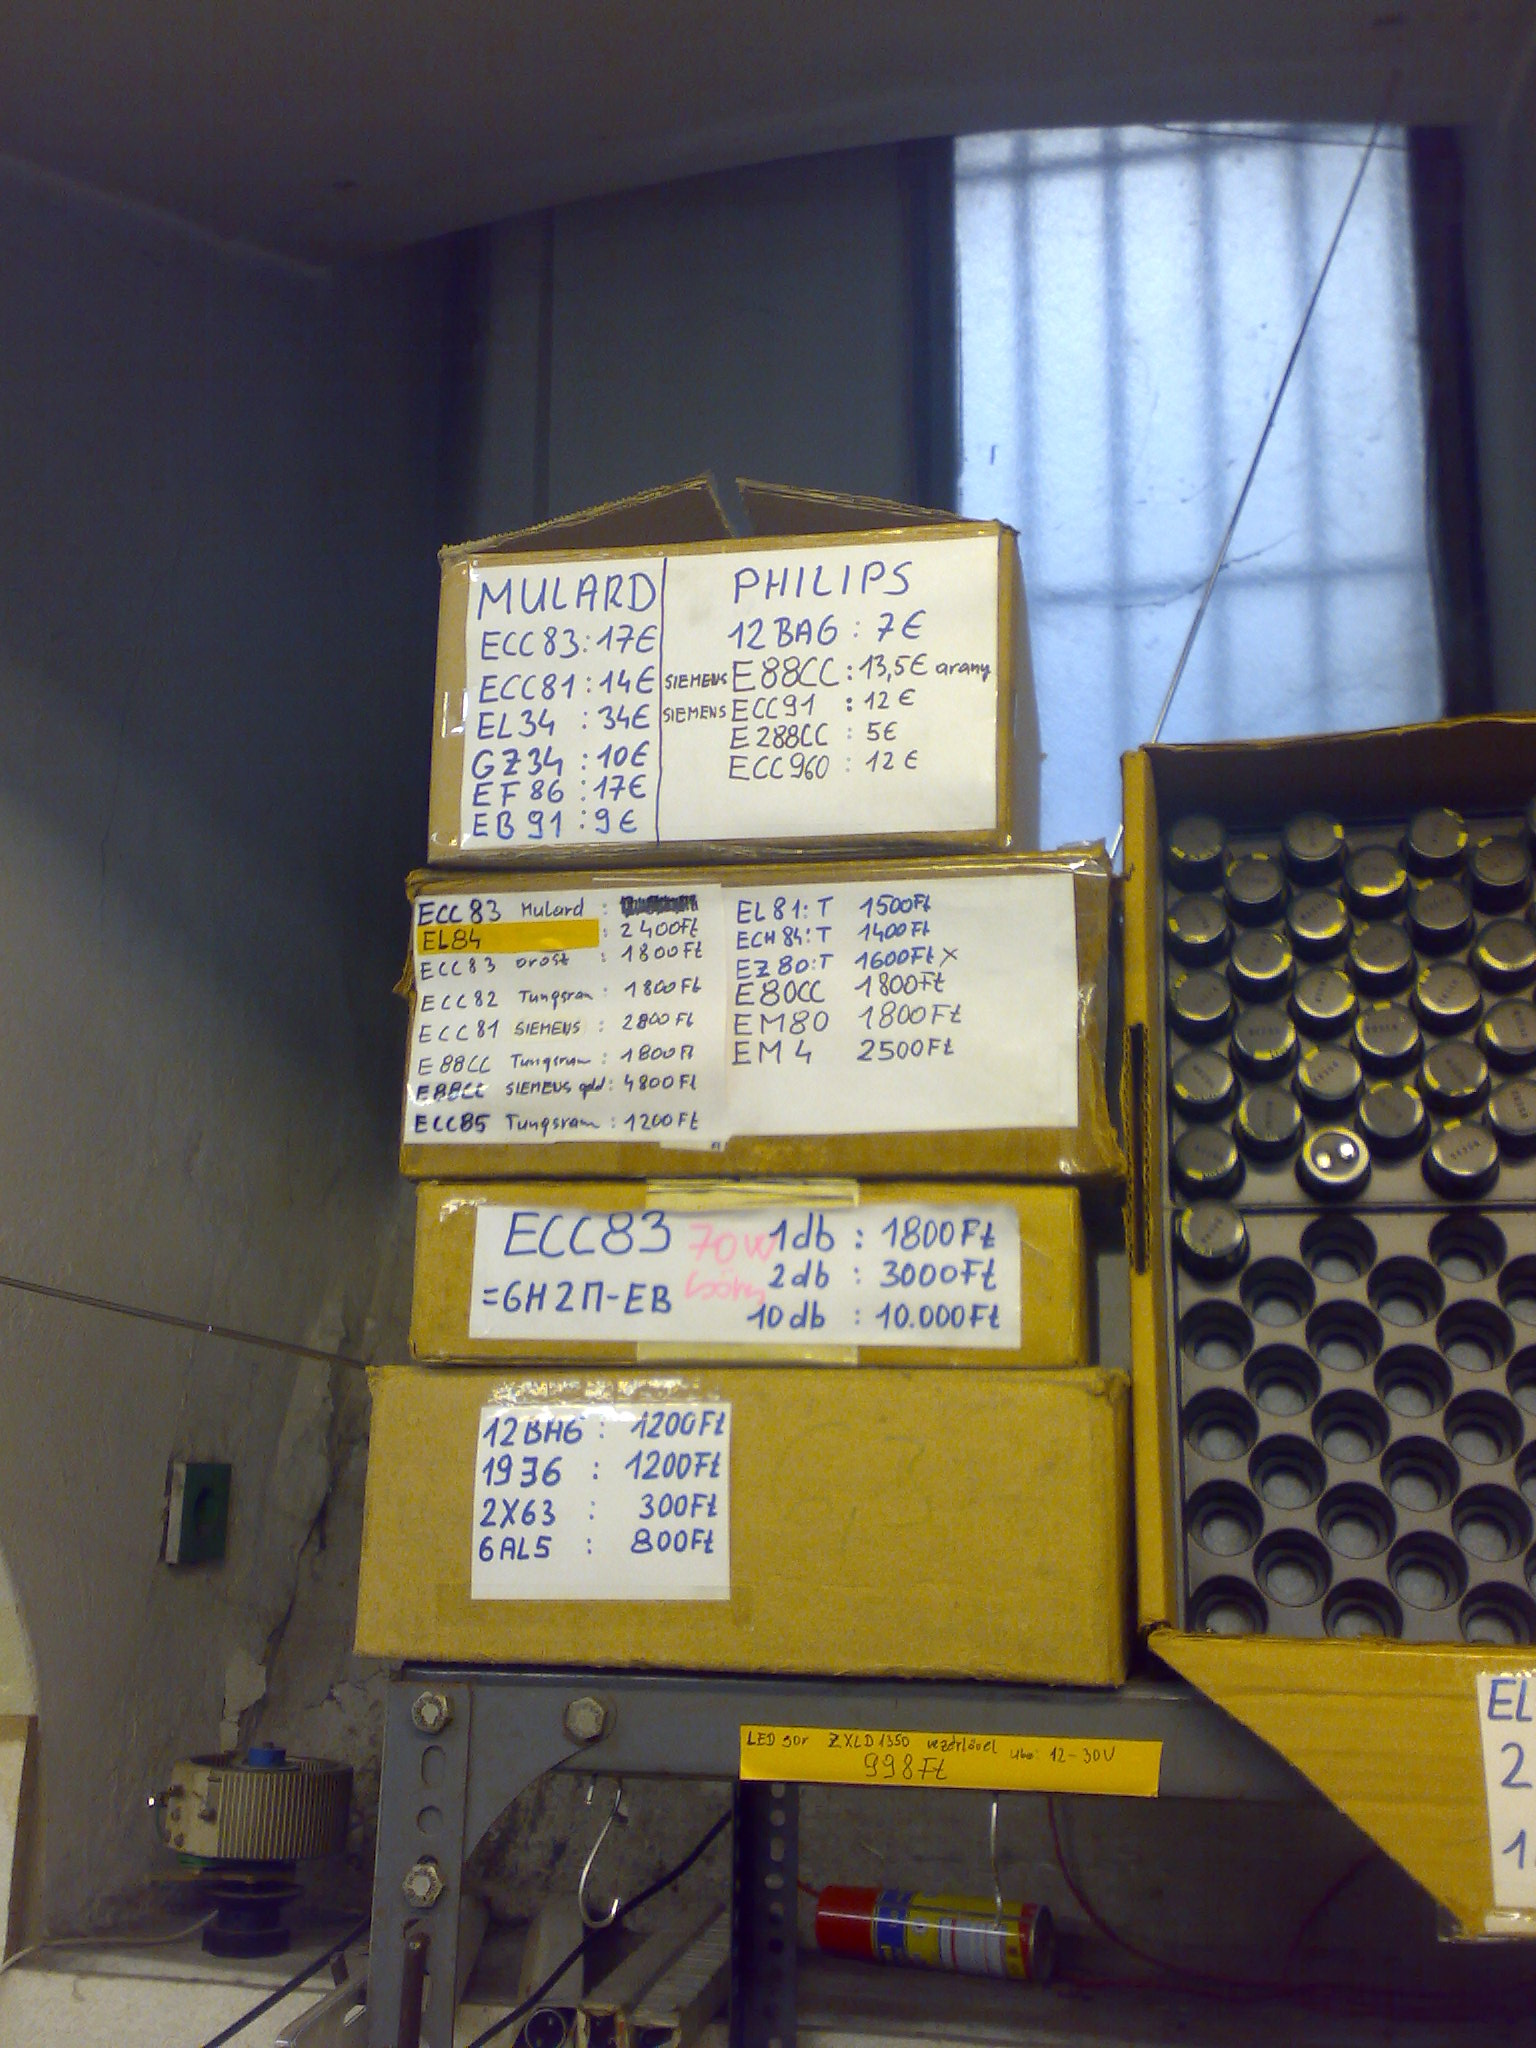 MULARD
ECC83:17€
ECC81:14€
EL34 :34€
GZ34 :10€
EF86 :17€
EB91:9€
PHILIPS
12BA6: 7€
SIEMENS E88CC:13,5€ arany
SIEMENS ECC91 : 12€
E288CC : 5€
ECC960 : 12€
ECC83 Mulard :
EL84 : 2400Ft
ECC83 orosz : 1800Ft
ECC82 Tungsram : 1800Ft
ECC81 SIEMENS : 2800Ft
E88CC Tungsram : 1800Ft
E88CC SIEMENS gold : 4800Ft
ECC85 Tungsram : 1200Ft
EL81:T 1500Ft
ECH84:T 1400Ft
EZ80:T 1600Ft X
E80CC 1800Ft
EM80 1800Ft
EM4 2500Ft
ECC83 70W 1db : 1800Ft
=6H2П-EB 2db : 3000Ft
10db : 10.000Ft
12BH6 : 1200Ft
19J6 : 1200Ft
2X63 : 300Ft
6AL5 : 800Ft
LED sor ZXLD1350 vezérlővel Ube: 12-30V
998Ft
EL
2
1